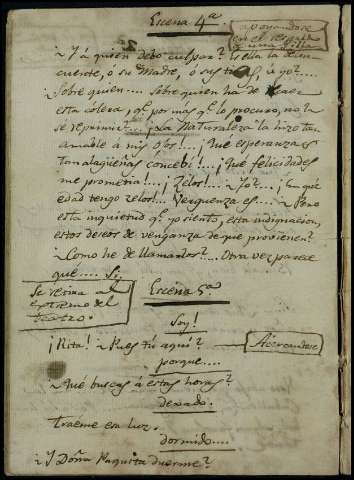 Escena 4ª
apoyandose
en el respaldo
de una silla
~ Y á quien debo culpar? Es ella la delin-
cuente, ó su Madre, ó sus tias, ó yo?....
~ Sobre quien.... sobre quien ha de caer
esta cólera, qe. por más qe. lo procuro, no la
se reprimir?.... ¡La Naturaleza la hizo tan
amable á mis ojos!... ¡Que esperanzas
tan alagüeñas concebí!... ¡Qué felicidades
me prometia!... ¡Zelos!... ~ Yo?... ¡En qué
edad tengo zelos!... Verguenza es... ~ Pero
esta inquietud qe. yo siento, esta indignacion,
estos deseos de venganza de que provienen?
~ Como he de llamarlos?... Otra vez parece
que.... Si.
Se retira al
extremo del
teatro.
Escena 5ª
Soy!
¡Rita! ~ Pues tú aquí?
Acercandose
porque....
~ Qué buscas á estas horas?
dexado.
Traeme esa luz.
dormido....
~ Y Doña Paquita duerme?